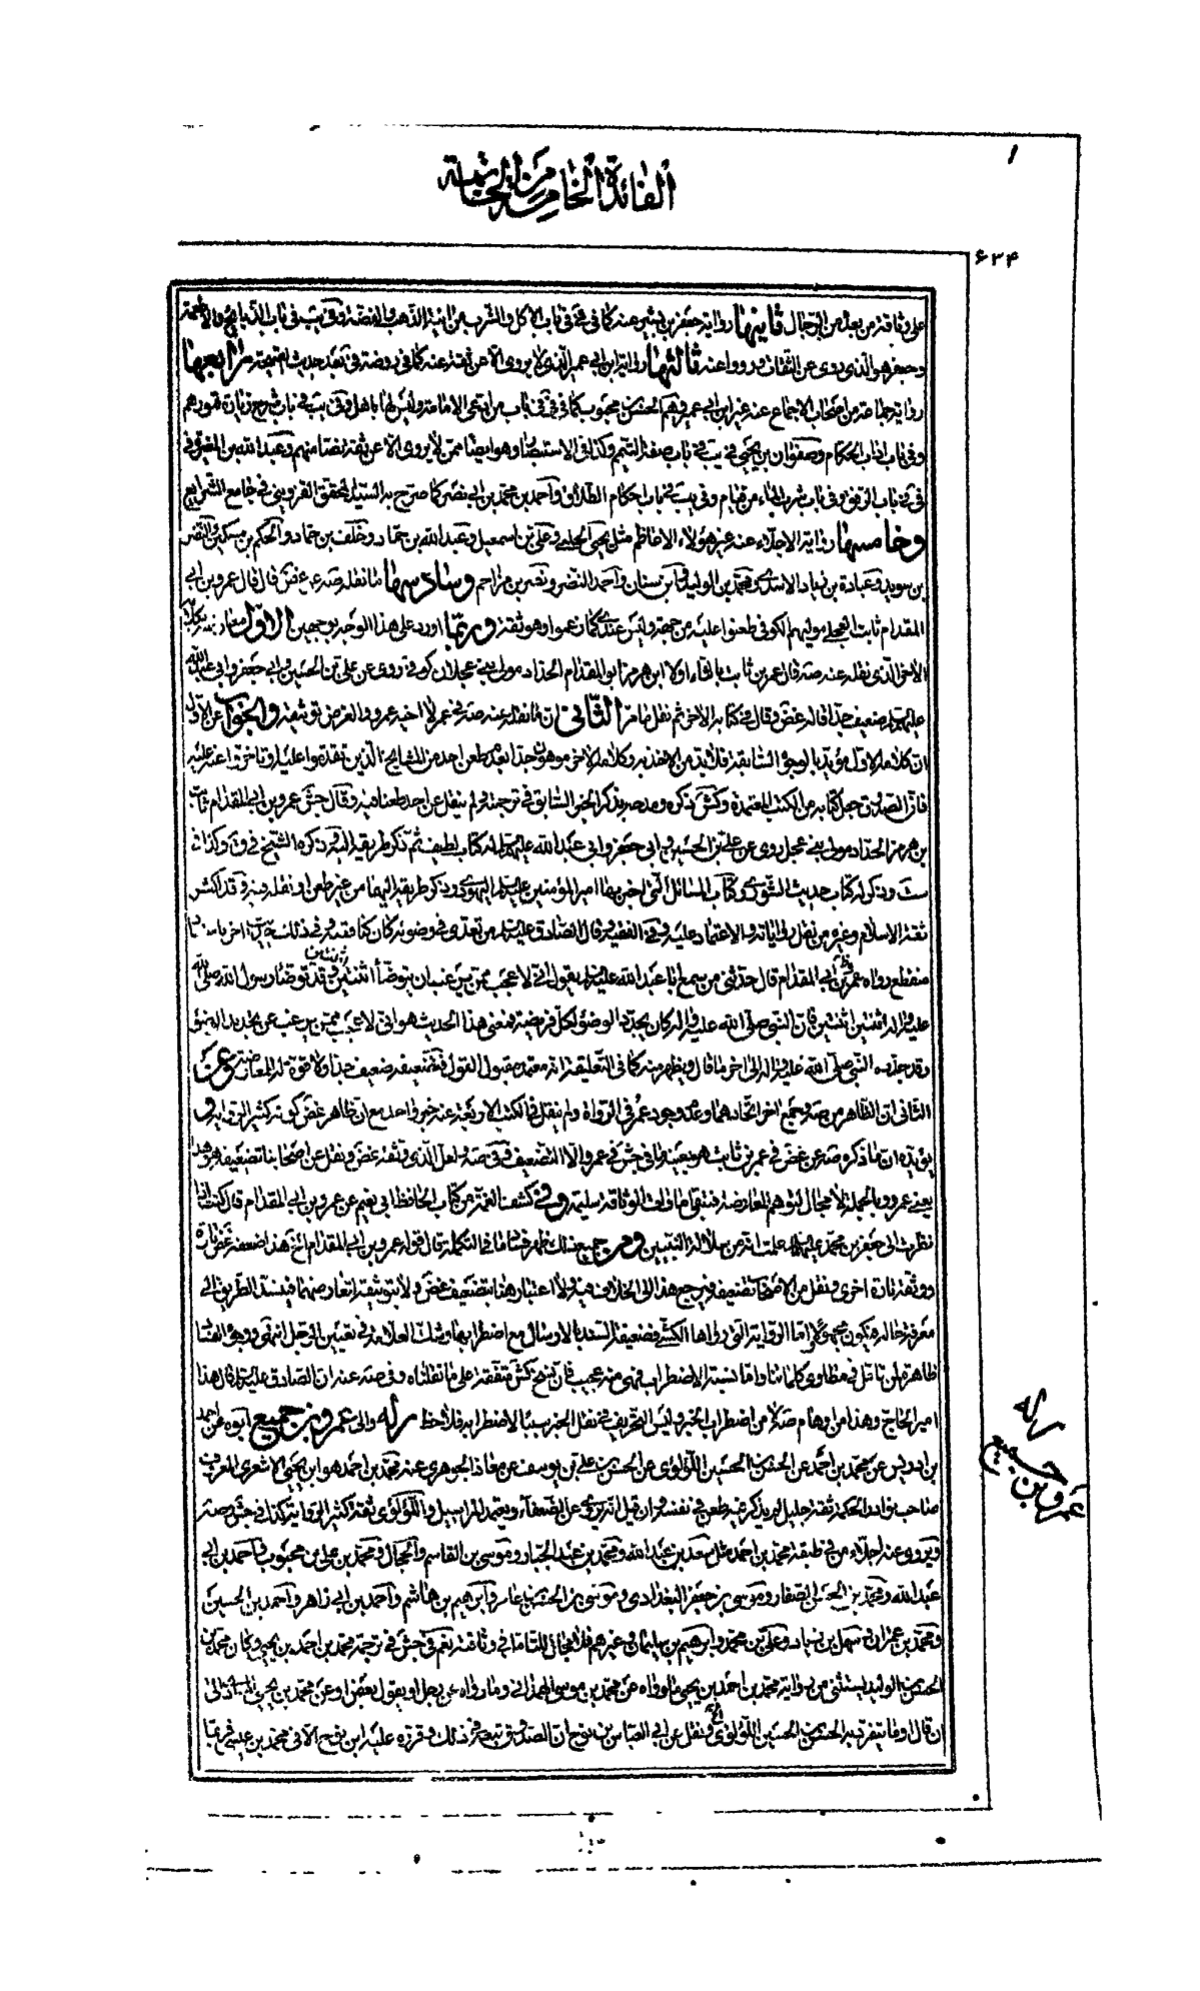 الفائدة الخامسة من الخاتمة
٦٣٤
على وثاقته من بعد من الرجال ثانيها رواية جعفر بن بشير عنه كما في في باب الأكل والشرب من آنية الذهب والفضة وفي يب في باب الذبايح والأطعمة
وجعفر هو الذي روى عن الثقات ورووا عنه ثالثها رواية ابن أبي عمير الذي لا يروي إلا عن ثقة عنه كما في روضة في بعد حديث رابعها
رواية جماعة من أصحاب الإجماع عنه غير ابن أبي عمير وهم الحسن بن محبوب كما في في باب من ادعى الإمامة وليس لها بأهل وفي يب في باب
وفي باب آداب الحكام وصفوان بن يحيى في يب في باب صفة التيمم وكذا في الاستبصار وهو أيضا ممن لا يروي إلا عن ثقة نصا منهم وعبد الله بن المغيرة في
في في باب الوقوف وفي باب شرب الماء من قيام وفي يب في باب أحكام الطلاق وأحمد بن محمد بن أبي نصر كما صرح به السيد المحقق القزويني في جامع الشرايع
وخامسها رواية الأجلاء عنه غير هؤلاء الأعاظم مثل يحيى الحلبي وعلي بن اسمعيل وعبد الله بن حماد وخلف بن حماد والحكم بن مسكين والنضر
بن سويد وعبادة بن زياد الأسدي ومحمد بن الوليد وابن سنان وأحمد النضر ونصر بن مزاحم وسادسها ما نقله صه عن غض قال قال عمرو بن أبي
المقدام ثابت العجلي مولاهم الكوفي طعنوا عليه من جهة وليس عندي كما زعموا وهو ثقة وربما أورد على هذا الوجه بوجهين الأول معارضته بكلامه
الآخر الذي نقله عنه صه قال عمر بن ثابت بالفاء أولا ابن هرمز أبو المقدام الحداد مولى بني عجلان كوفي روى عن علي بن الحسين وأبي جعفر وأبي عبد الله
عليهم السلام ضعيف جدا قاله غض وقال في كتابه الآخر ثم نقل ما مر الثاني أن ما نقله عنه صه في عمر لا أخيه عمرو والغرض توثيقه والجواب عن الأول
أن كلامه الأول مؤيد بالوجوه السابقة فلا بد من الأخذ به وكلامه الآخر موهون جدا بعدم طعن أحد من المشايخ الذين تقدموا عليه أو تأخروا عنه عليه
فإن الصدوق جعل كتابه من الكتب المعتمدة وكش ذكره ومدحه بذكر الخبر السابق في ترجمته ولم ينقل عن أحد طعنا فيه وقال جش عمرو بن أبي المقدام ثابت
بن هرمز الحداد مولى بني عجل روى عن علي بن الحسين وأبي جعفر وأبي عبد الله عليهم السلام له كتاب لطيف ثم ذكر طريقه إليه وذكره الشيخ في
ست وذكر له كتاب حديث الشورى وكتاب المسائل التي أخبر بها أمير المؤمنين عليه السلام اليهودي وذكر طريقه إليهما من غير طعن أو نقله فيه وقد أكثر
ثقة الإسلام وغيره من نقل رواياته والاعتماد عليه وفي الفقيه وقال الصادق عليه السلام من تعدى في وضوئه كان كناقضه وفي ذلك حديث آخر بإسناد
منقطع رواه عمرو بن أبي المقدام قال حدثني من سمع أبا عبد الله عليه السلام يقول إني لأعجب ممن يرغب أن يتوضأ اثنتين اثنتين وقد توضأ رسول الله صلى الله
عليه وآله اثنتين اثنتين فإن النبي صلى الله عليه وآله كان يجدد الوضوء لكل فريضة فمعنى هذا الحديث هو أني لأعجب ممن يرغب عن تجديد الوضوء
وقد جدده النبي صلى الله عليه وآله إلى آخر ما قال ويظهر منه كما في التعليقة أنه معتمد مقبول القول فتضعيفه ضعيف جدا ولا قوة له للمعارضة وعن
الثاني أن الظاهر من صه وجمع آخر اتحادهما وعدم وجود عمر في الرواة ولم ينقل في الكتب الأربعة عنه خبر واحد مع أن ظاهر غض كونه كثير الرواية
يؤيده أن ما ذكره صه عن غض في عمر بن ثابت هو بعينه ما في جش في عمرو إلا التضعيف وفي صه لعل الذي وثقه غض ونقل عن أصحابنا تضعيفه هو هذا
يعني عمرو وبالجملة لا مجال لتوهم المعارضة فتبقى أمارات الوثاقة سليمة وفي كشف الغمة من كتاب الحافظ أبي نعيم عن عمرو بن أبي المقدام قال كنت إذا
نظرت إلى جعفر بن محمد عليهما السلام علمت أنه من سلالة النبيين ومن جميع ذلك يظهر فساد ما في التكملة قال قوله عمرو بن أبي المقدام الخ هذا ضعفه غض تارة
ووثقه تارة أخرى ونقل من الأصحاب تضعيفه ومرجع هذا إلى الخلاف فيه ولا اعتبار هنا بتضعيف غض ولا بتوثيقه لتعارضهما فينسد الطريق إلى
معرفة حاله فيكون مجهولا وأما الرواية التي رواها الكشي فضعيفة السند بالإرسال مع اضطرابها وشك العلامة في تعيين الرجل انتهى ووجوه الفساد
ظاهرة لمن تأمل في مطاوي كلماتنا وأما نسبة الاضطراب فهي منه عجيب فإن نسخ كش متفقة على ما نقلناه وفي صه عنه أن الصادق عليه السلام قال هذا
أمير الحاج وهذا من أوهام صه لا من اضطراب الخبر وليس التحريف في نقل الخبر سببا لاضطرابه فلاحظ رله وإلى عمرو بن جميع أبوه عن أحمد
بن إدريس عن محمد بن أحمد عن الحسن بن الحسين اللؤلؤي عن الحسن بن علي بن يوسف عن معاذ الجوهري عنه محمد بن أحمد هو ابن يحيى الأشعري المعروف
صاحب نوادر الحكمة ثقة جليل لم يذكر فيه طعن في نفسه وإن قيل أنه يروي عن الضعفاء ويعتمد المراسيل واللؤلؤي ثقة كثير الرواية كذا في جش وصه
ويروي عنه أجلاء من في طبقة محمد بن أحمد مثل سعد بن عبد الله ومحمد بن عبد الجبار وموسى بن القاسم والحجال ومحمد بن علي بن محبوب وأحمد بن أبي
عبد الله ومحمد بن الحسن الصفار وموسى بن جعفر البغدادي وموسى بن الحسن بن عامر وإبراهيم بن هاشم وأحمد بن أبي زاهر وأحمد بن الحسين
ومحمد بن عمران وسهل بن زياد وعلي بن محمد وإبراهيم بن سليمان وغيرهم فلا مجال للتأمل في وثاقته نعم في جش في ترجمة محمد بن أحمد بن يحيى وكان محمد بن
الحسن بن الوليد يستثني من رواية محمد بن أحمد بن يحيى ما رواه عن محمد بن موسى الهمداني وما رواه عن رجل أو يقول بعض أو عن محمد بن يحيى المعاذي إلى
أن قال أو ما يتفرد به الحسن بن الحسين اللؤلؤي الخ ونقل عن أبي العباس بن نوح أن الصدوق تبعه في ذلك وقرره عليه ابن نوح إلا في محمد بن عيسى فربما
رله
عمرو بن جميع